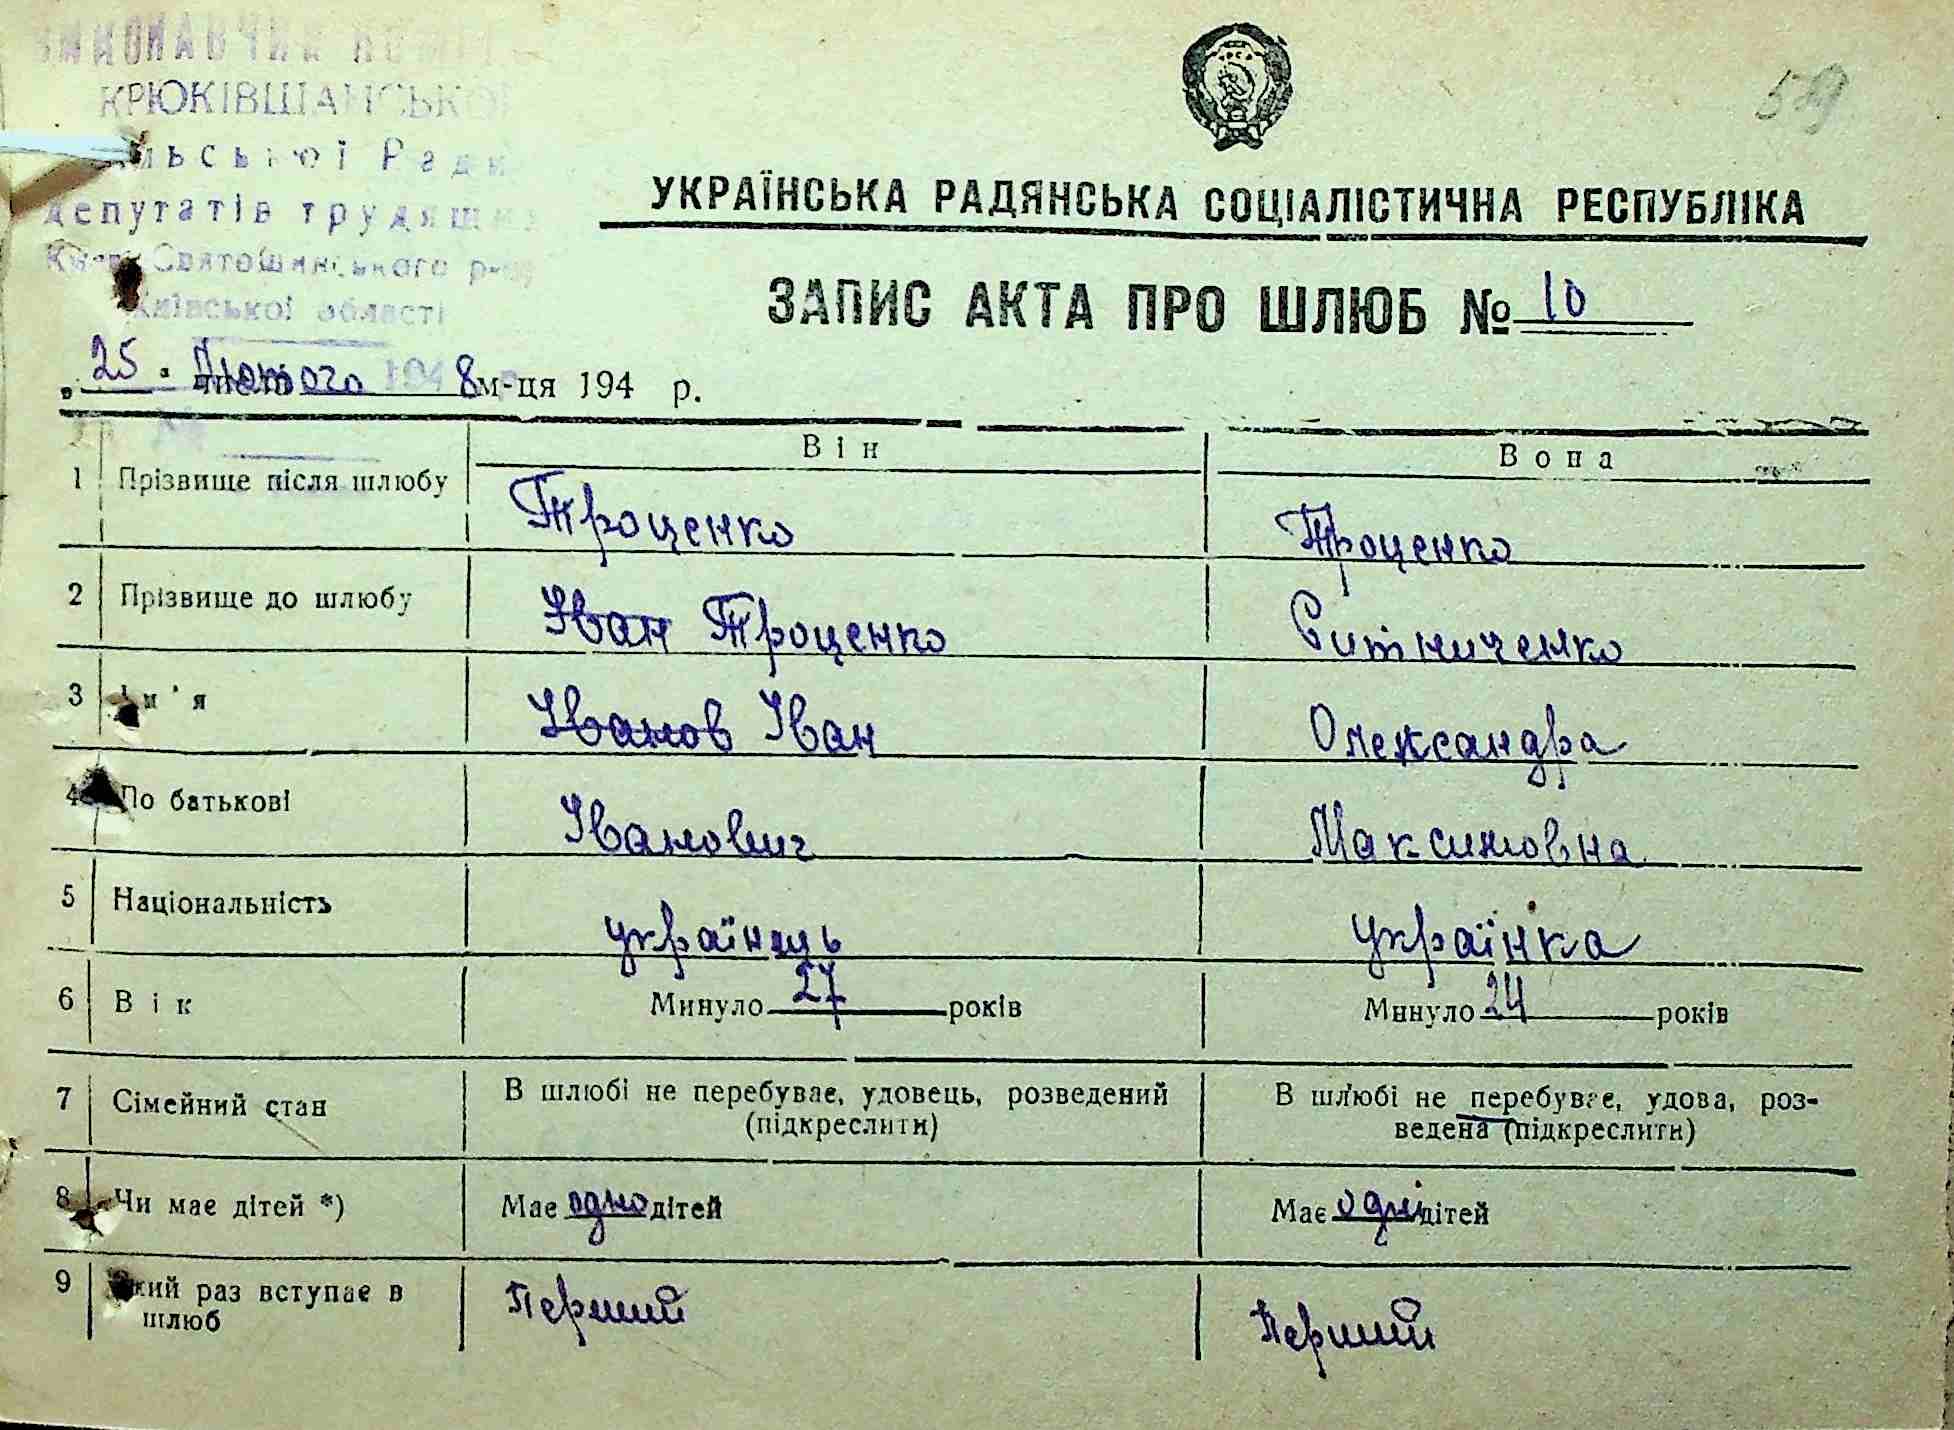 ВИКОНАВЧИЙ КОМІТ
КРЮКІВЩАНСЬКОЇ
сільської Ради
депутатів трудящих
Києво-Святошинського р-ну
Київської області
589
УКРАЇНСЬКА РАДЯНСЬКА СОЦІАЛІСТИЧНА РЕСПУБЛІКА
ЗАПИС АКТА ПРО ШЛЮБ № 10
"25" Лютого 8 м-ця 194 р.
Він Вона
1 Прізвище після шлюбу Троценко Троценко
2 Прізвище до шлюбу Іван Троценко Ситниченко
3 Ім'я Іванов Іван Олександра
4 По батькові Іванович Максимовна
5 Національність українець українка
6 Вік Минуло 27 років Минуло 24 років
7 Сімейний стан В шлюбі не перебуває, удовець, розведений (підкреслити) В шлюбі не перебуває, удова, роз-
ведена (підкреслити)
8 Чи має дітей *) Має одно дітей Має одні дітей
9 Який раз вступає в шлюб Перший Перший